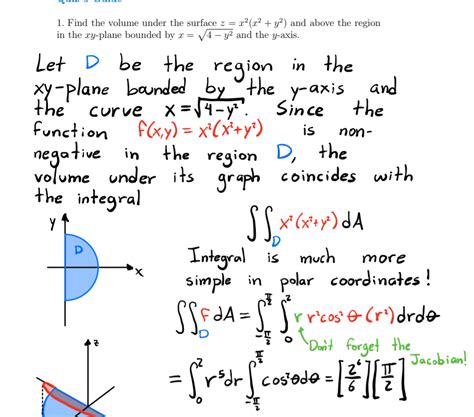 1. Find the volume under the surface z = x²(x² + y²) and above the region
in the xy-plane bounded by x = √(4 − y²) and the y-axis.
Let D be the region in the
xy-plane bounded by the y-axis and
the curve x=√(4-y²). Since the
function f(x,y) = x²(x²+y²) is non-
negative in the region D, the
volume under its graph coincides with
the integral
∬_D x²(x²+y²) dA
y
D
x
Integral is much more
simple in polar coordinates!
∬_D f dA = ∫_{-π/2}^{π/2} ∫_0^2 r r²cos²θ (r²) dr dθ
Don't forget the
Jacobian!
z
= ∫_0^2 r⁵dr ∫_{-π/2}^{π/2} cos²θ dθ = [2⁶/6][π/2]